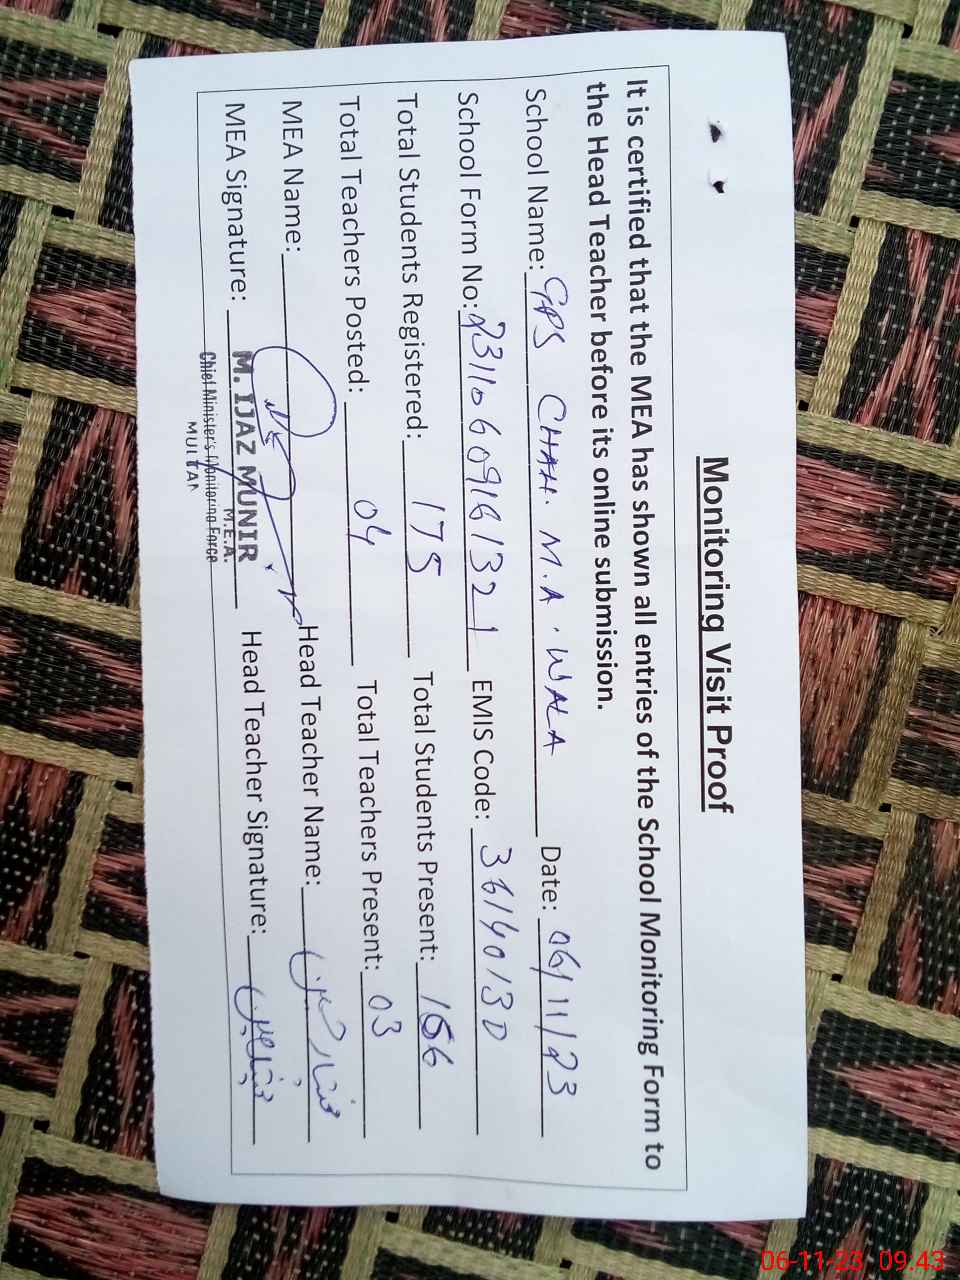 Monitoring Visit Proof
It is certified that the MEA has shown all entries of the School Monitoring Form to
the Head Teacher before its online submission.
School Name: GPS CHAH. M.A. WALA Date: 06/11/23
School Form No: 23110609161321 EMIS Code: 36140130
Total Students Registered: 175 Total Students Present: 166
Total Teachers Posted: 04 Total Teachers Present: 03
MEA Name: Head Teacher Name:
MEA Signature: Head Teacher Signature:
M. IJAZ MUNIR
M.E.A.
Chief Minister's Monitoring Force
MULTAN
06-11-23 09:43